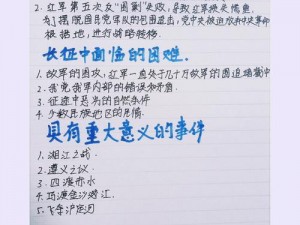 2. 红军第五次反“围剿”失败，导致红军损失惨重
为了摆脱国民党军队的包围追击，党中央被迫放弃中央革命
根据地，进行战略转移。
长征中面临的困难。
1. 敌军的困难，红军一直处于几十万敌军的围追堵截中
2. 我党我军内部的错误和矛盾
3. 征途中恶劣的自然条件
4. 少数民族地区的恩情
具有重大意义的事件
1. 湘江之战
2. 遵义之议
3. 四渡赤水
4. 巧渡金沙湘江
5. 飞夺泸定河